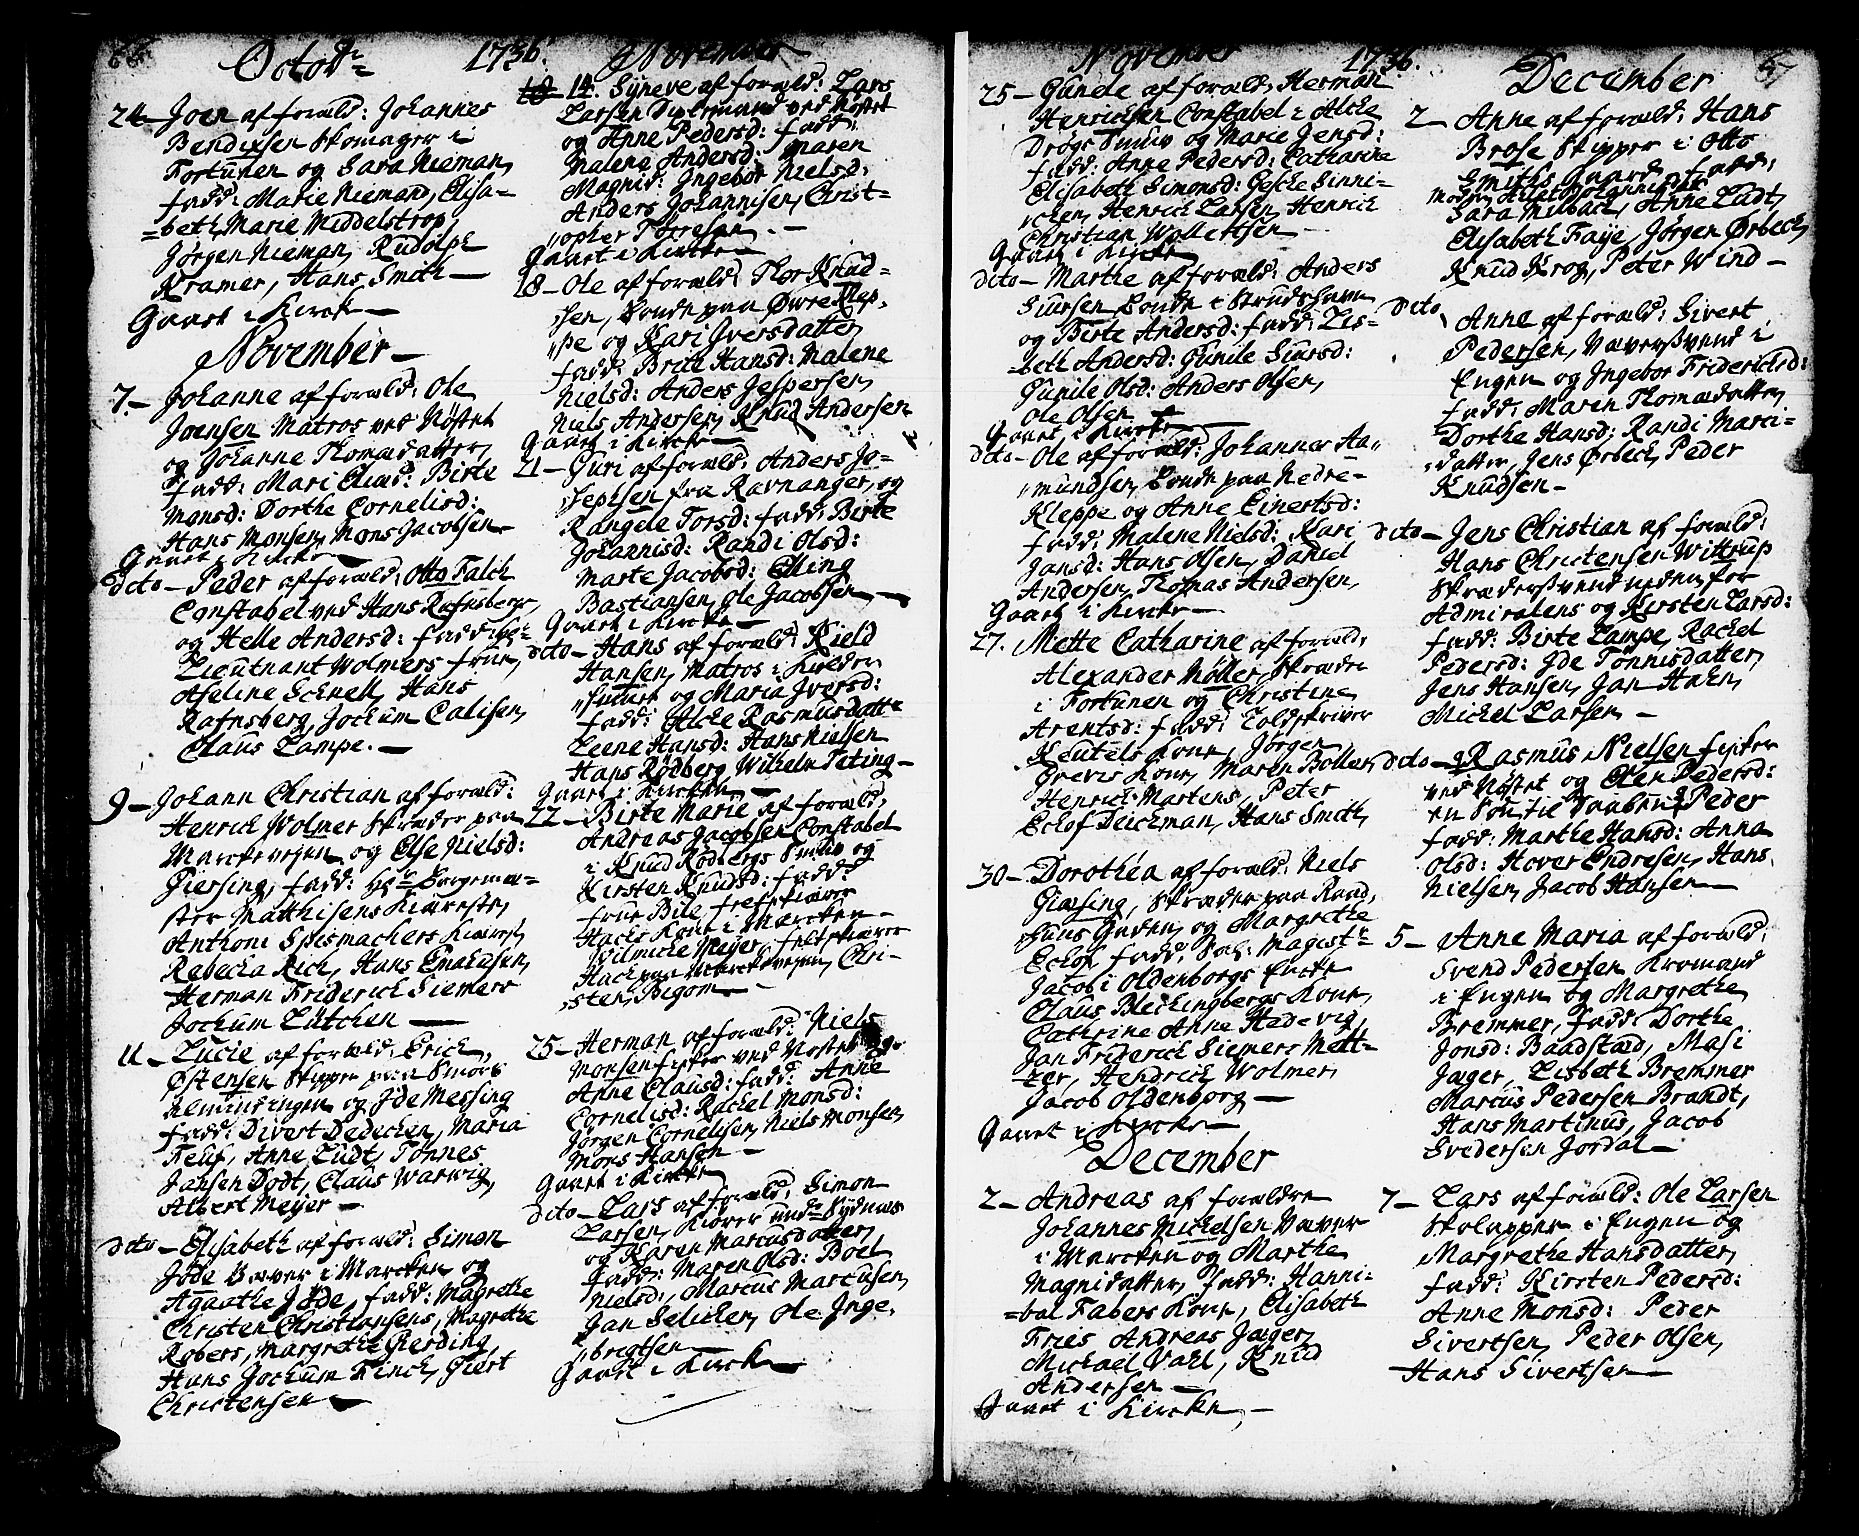 66
Octobr 1736. November
24 – Joen af foræld: Johannes
Bendixsen Skomager i
Fortunen og Sara Nieman,
fadd: Marie Nieman, Elisa=
=beth Marie Middelstrop,
Jørgen Nieman, Rudolph
Kramer, Hans Smith –
Gaaet i Kircke –
November –
7 – Johanne af foræld: Ole
Joensen Matros ved Nøstet
og Johanne Thomædatter,
fadd: Mari Eliasd: Birte
Monsd: Dorthe Cornelisd:
Hans Monsen, Mons Jacobsen –
Gaaet i Kircke –
dito – Peder af foræld: Otto Falch
Constabel ved Hans Rafnsberg,
og Helle Andersd: fadd:
Lieutnant Wolmers frue,
Aseline Schnell, Hans
Rafnsberg, Jochum Calisen,
Claus Lampe. –
9 – Johann Christian af foræld:
Henrich Wolmer Skræder paa
Marckevejen og Else Nielsd:
Giersing, fadd: Hr Borgeme=
ster Matthisens Kiæreste,
Anthoni Spesmachers Kiærest,
Rebecka Rich, Hans Emahusen,
Herman Friderich Siemers
Jochum Lütchen –
11 – Lucie af foræld: Erich
Østensen Skipper paa Smørs
Almindingen og Ide Messing
fadd: Divert Dedechen, Maria
Feuf, Anne Ludt, Tønnes
Jansen Dodt, Claus Warwig,
Albert Meyer –
dito – Elisabeth af foræld: Simon
Jøde Væver i Marcken og
Agaathe Jøde, fadd: Magrethe
Christen Christiansens, Magrethe
Robers, Margrethe Gierding,
Hans Jochum Finch, Giert
Christensen –
14. Syneve af foræld: Lars
Larsen ved Nøstet
og Anne Pedersd: fadd:
Malene Andersd: Maren
Magnid: Ingebor Nielsd:
Anders Johannisen, Christ=
=opher Torresen. –
Gaaet i Kircke –
18 – Ole af foræld: Thor Knud=
=sen, Bonde paa Øvre Klep=
=pe og Kari Iversdatter,
fadd: Brite Hansd: Malene
Nielsd: Anders Jespersen,
Niels Andersen, Knud Andersen
Gaaet i Kircke –
21 – Guri af foræld: Anders Jo=
=sephsen fra Ravnanger, og
Rangele Torsd: fadd: Birte
Johannisd: Randi Olsd:
Marte Jacobsd: Elling
Bastiansen, Ole Jacobsen, –
Gaaet i Kircke –
dito – Hans af foræld: Kield
Hansen, Matros i
og Maria Iversd:
fadd: Alche Rasmusdattr
Leene Hansd: Hans Nielsen
Hans Rødberg, Wilhelm Teting –
Gaaet i Kircken –
22 – Birte Marie af foræld:
Andreas Jacobsen Constabel
i Knud Rødbergs Smuw og
Kirsten Knudsd: fadd:
frue Bile, feltskiærer
Hachs Kone i Marcken –
Wilmicke Meyer, feltskiærer
Hach paa Marckevejen, Chri=
=sten, Bigom –
25 – Herman af foræld: Niels
Monsen fisker ved Nøstet og
Anne Clausd: fadd: Anne
Cornelisd: Rachel Monsd:
Jørgen Cornelisen, Niels Monsen,
Mons Hansen –
Gaaet i Kircke
dito – Lars af foræld: Simon
Larsen, Kiører undr Sydnæs
og Karen Marcusdatter,
fadd: Maren Olsd: Boel
Nielsd: Marcus Marcusen,
Jan Selicker, Ole Inge,
=brigtsen –
Gaaet i Kircke –
November 1736. December 67
25 – Gunele af foræld: Herman
Henrichsen Constabel i Alche
Drøgs Smuw og Marie Jensd:
fadd: Anne Pedersd: Catharine
Elisabeth Simonsd: Gesche Sinni=
=chen, Henrich Larsen, Henrich
Christian Wollertsen –
Gaaet i Kircke
dito – Marthe af foræld: Anders
Siursen Bonde i Strudshavn
og Birte Andersd: fadd: Lis=
=beth Andersd: Gunile Siursd:
Gunile Olsd: Anders Olsen,
Ole Olsen –
Gaaet i Kircke –
dito – Ole af foræld: Johannes Aa=
=mundsen, Bonde paa Nedre=
Kleppe og Anne Einertsd:
fadd: Malene Nielsd: Kari
Jansd: Hans Olsen, Daniel
Andersen, Thomas Andersen,
Gaaet i Kircke –
27. Mette Catharine af foræld:
Alexander Møller, Skræder
i Fortunen og Christine
Arentsd: fadd: Toldskriver
Keutels Kone, Jørgen
Greves Kone, Maren Boller,
Henrich Martens, Peter
Echof Deichman, Hans Smith,
30 – Dorothéa af foræld: Niels
Giæsing, Skræder paa Raad,
=huus Gaden, og Margrethe
Echof fadd: Sal: Magistr
Jacobi Oldenborgs Encke
Claus Bleckingbergs Kone,
Cathrine Anne Hedevig,
Jan Friderich Siemers Mett=
=ler, Hendrich Wolmer,
Jacob Oldenborg –
Gaaet i Kircke –
December
2 – Andreas af forældre
Johannes Michelsen Væver
i Marcken og Marthe
Magnidatter, fadd: Hanni=
=bal Fabers Kone, Elisabeth
Fries Andreas Jæger,
Michael Vahl, Knud
Andersen –
Gaaet i Kircke, –
2 – Anne af foræld: Hans
Brose Skipper i Otto
Smiths Gaard, fadd:
Sara Milbach, Anne Ludt,
Elisabeth Faye, Jørgen Ørbech,
Knud Krog, Peter Wind –
dito
Anne af foræld: Sivert
Pedersen, Væversvend i
Engen og Ingebor Friderichsd:
fadd: Maren Thomædatter,
Dorthe Hansd: Randi Marci=
=datter, Jens Ørbech, Peder
Knudsen –
dito – Jens Christian af foræld:
Hans Christensen Wittrup
Skrædersvend neden for
Admiralens og Kirsten Larsd:
fadd: Birte Lampe, Rachel
Pedersd: Ide Tønnisdatter,
Jens Hansen, Jan Hahn,
Michel Larsen –
dito – Rasmus Nielsen fisker
ved Nøstet og Elen Pedersd:
en Søn til Daaben Peder
fadd: Marthe Hansd: Anna
Olsd: Hover Endresen, Hans
Nielsen, Jacob Hansen –
5 – Anne Maria af foræld:
Svend Pedersen Kromand
i Engen og Margrethe
Bremmer, fadd: Dorthe
Jonsd: Baadstæd, Masi
Jæger, Lisbeth Bremmer
Marcus Pedersen Brandt,
Hans Martinus, Jacob
Svedersen Jordal –
7 – Lars af foræld: Ole Larsen
Skolapper i Engen og
Margrethe Hansdatter,
fadd: Kirsten Pedersd:
Anne Monsd: Peder
Sivertsen, Peder Olsen,
Hans Sivertsen –